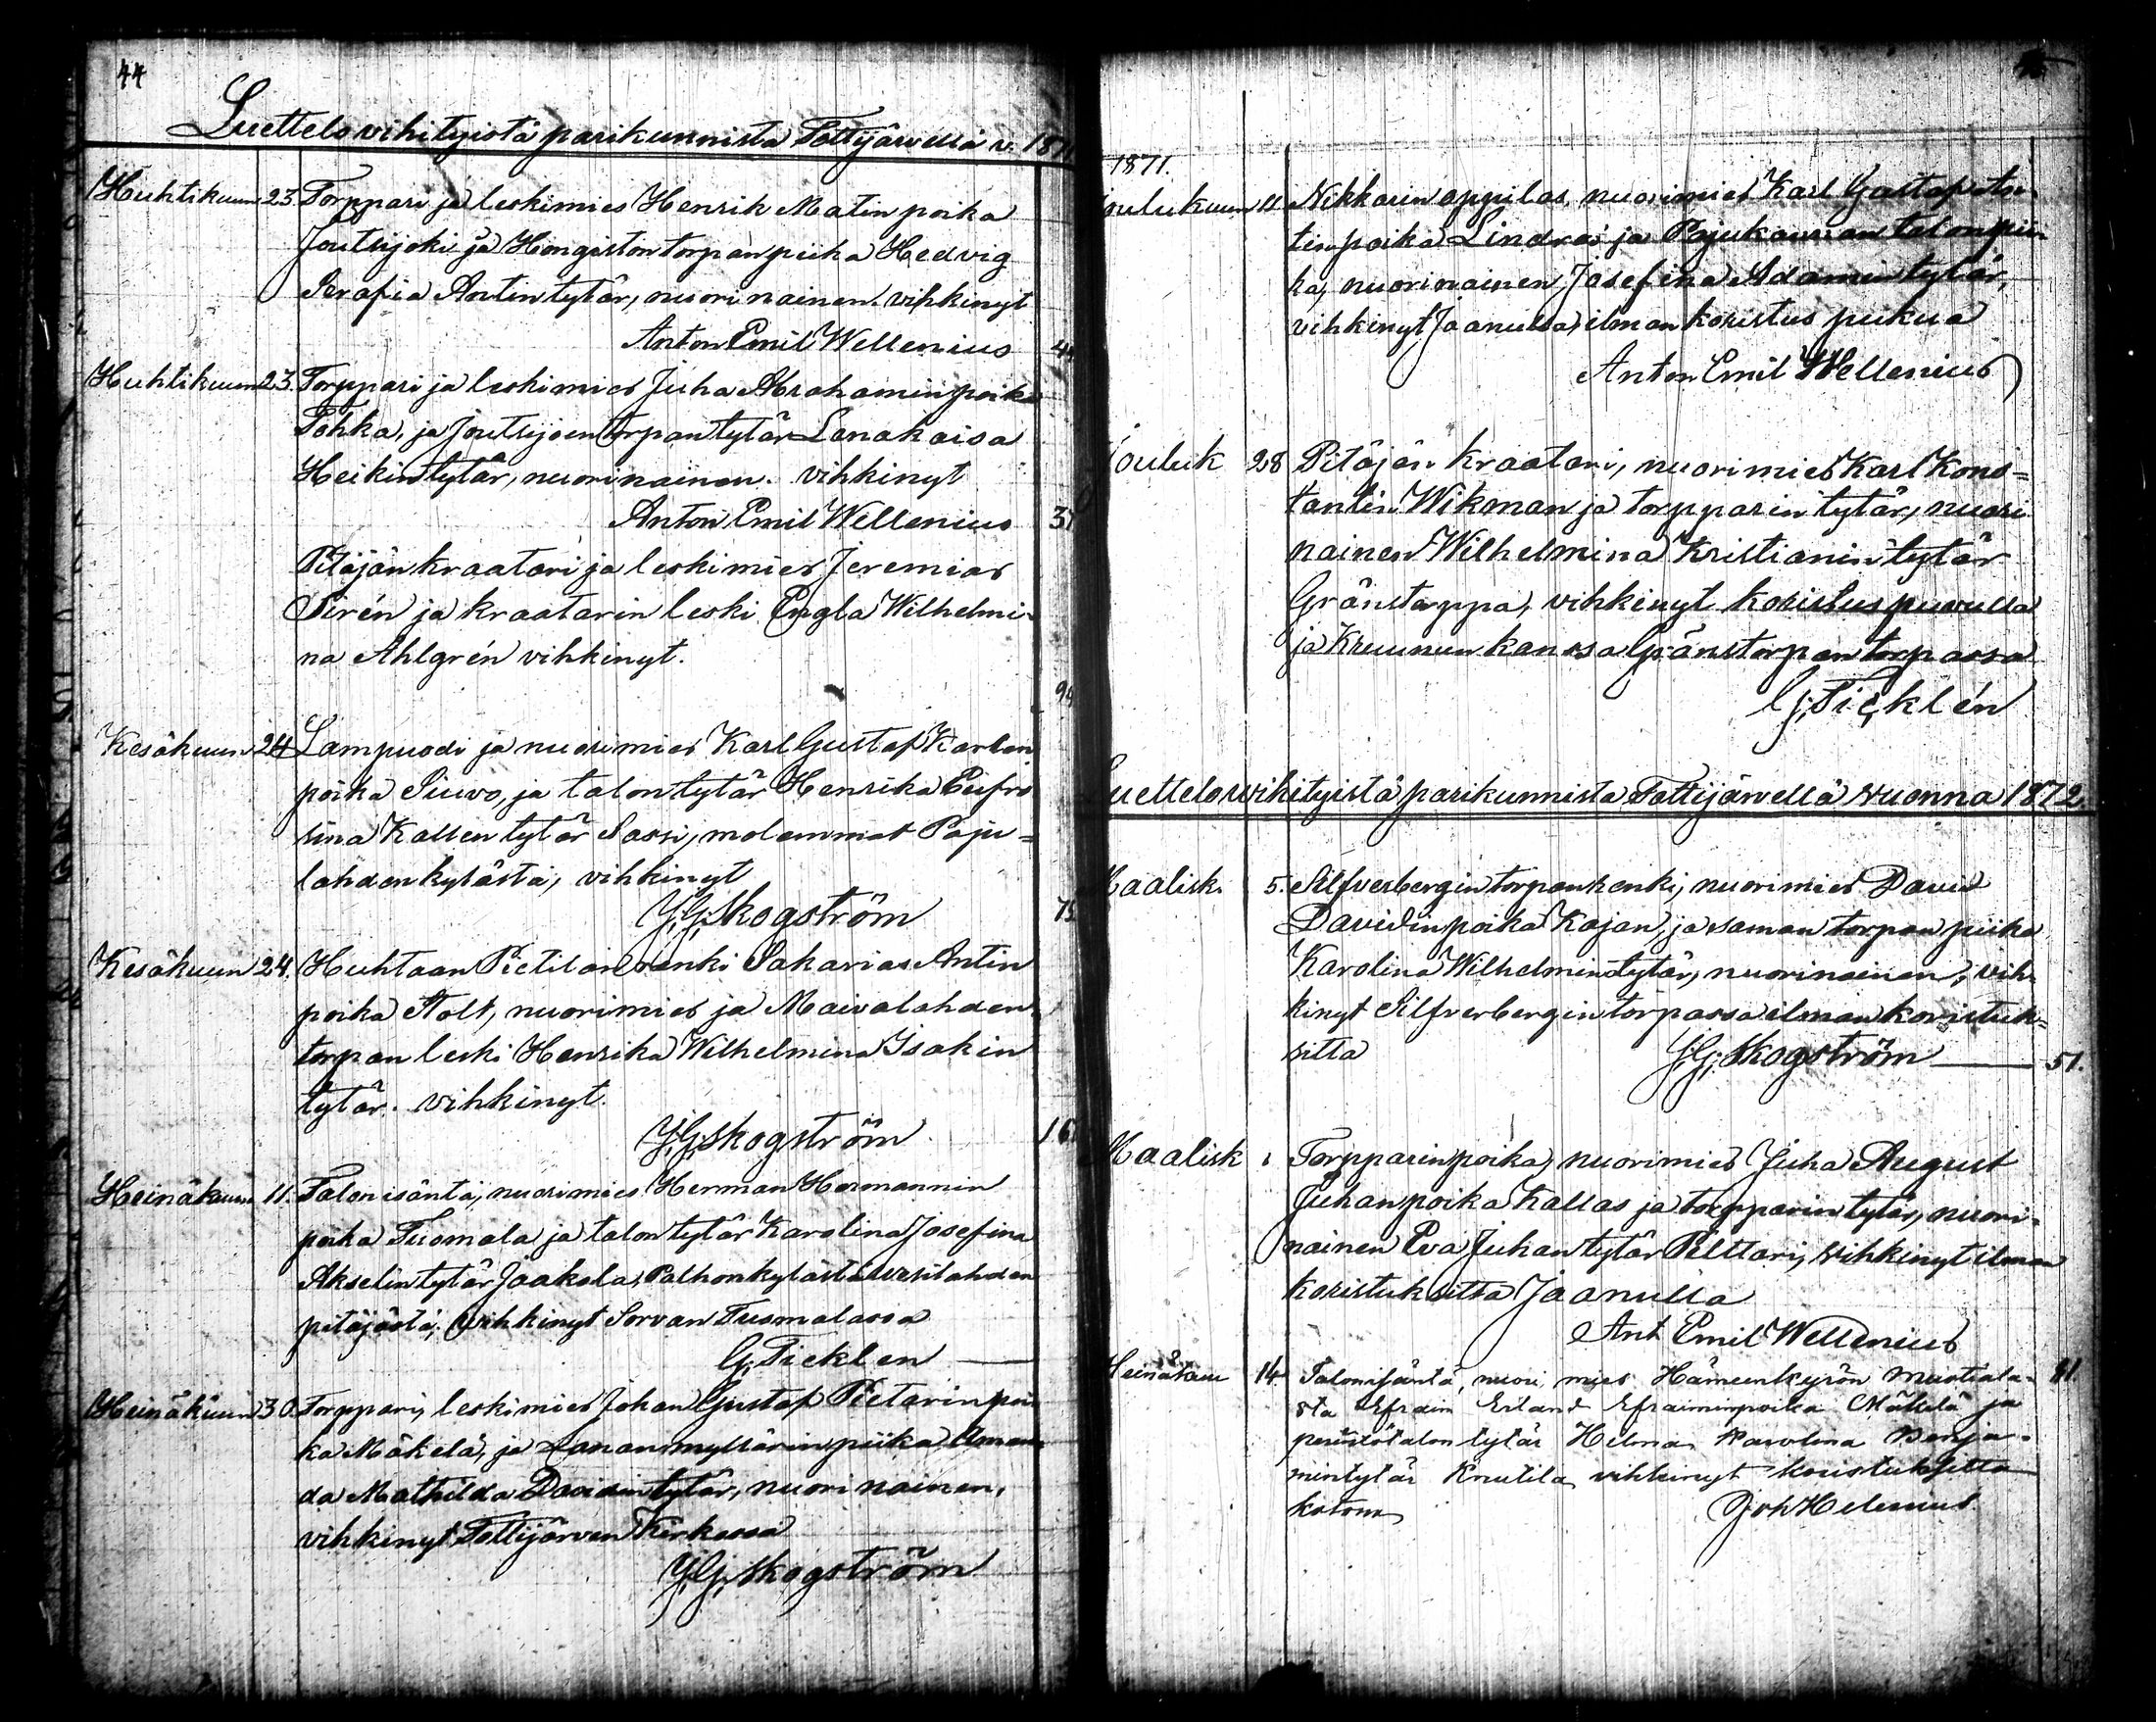 44
Luettelo vihityistä parikunnista Tottijärvellä v. 1871
Huhtikuun 23. Torppari ja leskimies Henrik Matin poika
Joutsijoki ja Hongiston torpan piika Hedvig
Serafia Antintytär, nuori nainen. vihkinyt
Anton Emil Wellenius
Huhtikuun 23. Torppari ja leskimies Juha Abrahamin poika
Pohka, ja Joutsijoen torpan tytär Lenakaisa
Heikintytär, nuorinainen. vihkinyt
Anton Emil Wellenius
Pitäjän kraatari ja leskimies Jeremias
Sirén ja kraatarin leski Engla Wilhelmi-
na Ahlgrén vihkinyt.
Kesäkuun 24 Lampuodi ja nuorimies Karl Gustaf Karlen
poika Siuvo, ja talon tytär Henrika Eufro
sina Kallen tytär Sassi, molemmat Paju=
lahden kylästä, vihkinyt
J.G. Skogström
Kesäkuun 24. Huhtaan Pietilän renki Sakarias Antin
poika Stolt, nuorimies ja Maivalahden
torpan leski Henrika Wilhelmina Isakin
tytär. vihkinyt.
J.G. Skogström
Heinäkuun 11. Talon isäntä, nuorimies Herman Hermannin
poika Tuomala ja talon tytär Karolina Josefina
Akselin tytär Jaakola, Palhon kylästä Vesilahden
pitäjästä, vihkinyt Sorvan Tuomalassa
G. Ticklen
Heinäkuun 30. Torppari, leskimies Johan Gustaf Pietarin poi
ka Mäkelä, ja Lanan myllärin piika Aman
da Mathilda Davidin tytär, nuori nainen,
vihkinyt Tottijärven Kirkossa
J.G. Skogström
1871.
Joulukuun 11 Nikkarin oppilas, nuorimies Karl Gustaf
tin poika Lindroos ja Pajukannan talon pii
ka, nuorinainen Josefina Adamin tytär,
vihkinyt Jaanulla, ilman koristus pukua
Anton Emil Wellenius
Jouluk 28 Pitäjän kraatari, nuorimies Karl Kons=
tantin Wikman ja torpparin tytär, nuori
nainen Wilhelmina Kristianin tytär
Gränstorppa, vihkinyt koristus puvulla
ja Kruunun kanssa Gränstorpan torpassa
G. Ticklén
Luettelo vihityistä parikunnista Tottijärvellä vuonna 1872.
Maalisk. 5. Silfverbergin torpan renki, nuorimies David
Davidin poika Kajan, ja saman torpan piika
Karolina Wilhelmin tytär, nuorinainen, vih-
kinyt Silfverbergin torpassa ilman koristuk=
sitta
J.G. Skogström 51.
Maalisk Torpparin poika, nuorimies Juha August
Juhan poika Kallas ja torpparin tytär, nuori-
nainen Eva Juhan tytär Pelttari, vihkinyt ilman
koristuksitta Jaanulla
Ant Emil Wellenius
Heinäkuu 14. Talonisäntä, nuori mies Hämeenkyrön Mustiala-
sta Efraim Erland Efraiminpoika Mäkelä ja
perintötalon tytär Helena Karolina Benja-
mintytär Knutila vihkinyt koristuksitta
kotona
Joh Helenius